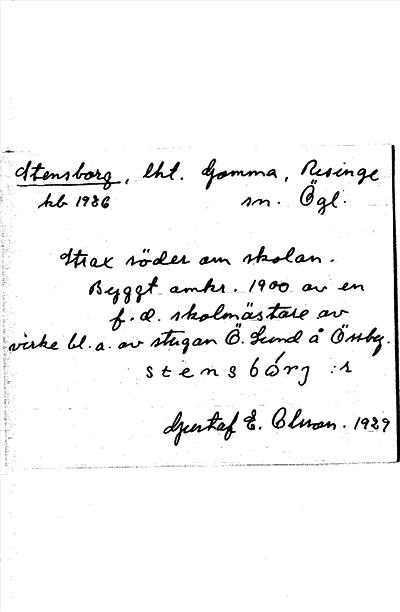 Stensborg, lht. Gomma, Risinge
kb 1936 sn. Ögl.
Strax söder om skolan.
Byggt omkr. 1900 av en
f. d. skolmästare av
virke bl. a. av stugan Ö. Lund å Össby.
stensbórj :s
Gustaf E. Olsson. 1929